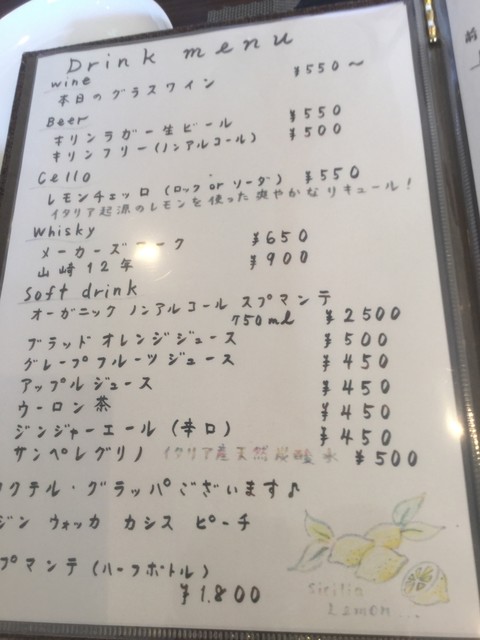 Drink menu
wine
本日のグラスワイン ¥550〜
Beer
キリンラガー生ビール ¥550
キリンフリー(ノンアルコール) ¥500
Cello
レモンチェッロ (ロック or ソーダ) ¥550
イタリア起源のレモンを使った爽やかなリキュール!
Whisky
メーカーズマーク ¥650
山崎12年 ¥900
Soft drink
オーガニック ノンアルコール スプマンテ
750ml ¥2500
ブラッド オレンジジュース ¥500
グレープフルーツジュース ¥450
アップルジュース ¥450
ウーロン茶 ¥450
ジンジャーエール (辛口) ¥450
サンペレグリノ イタリア産天然炭酸水 ¥500
クテル・グラッパございます♪
ジン ウォッカ カシス ピーチ
プマンテ(ハーフボトル)
¥1.800
Sicilia
Lemon...